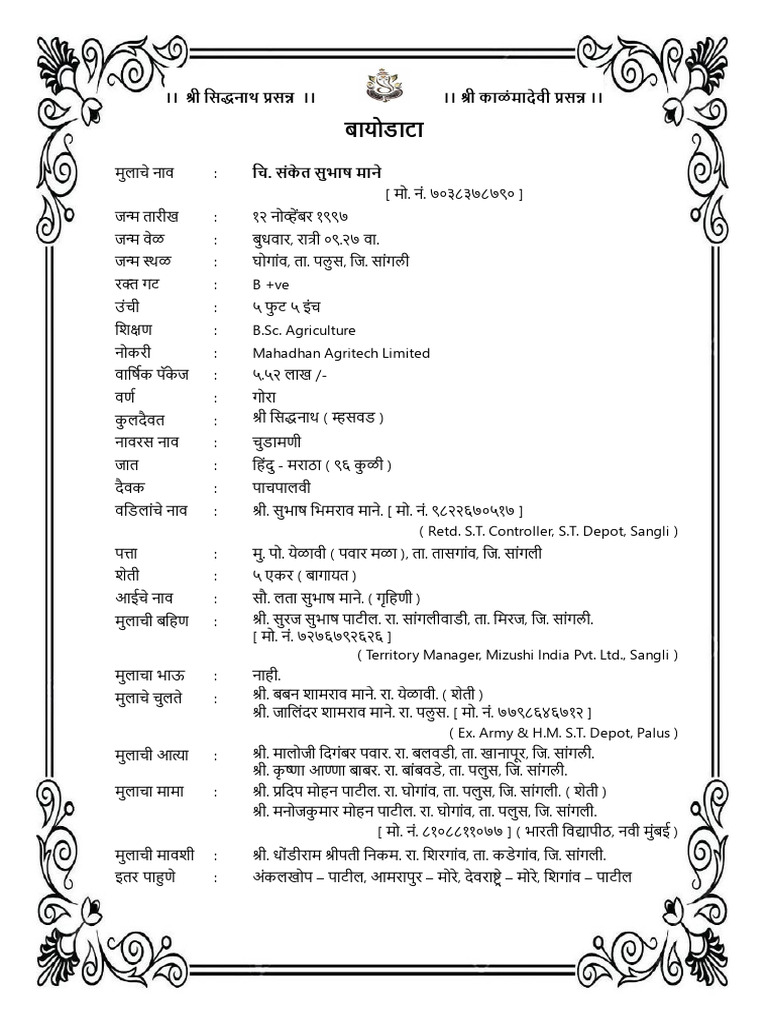 ।। श्री सिद्धनाथ प्रसन्न ।। ।। श्री काळंमादेवी प्रसन्न ।।
बायोडाटा
मुलाचे नाव : चि. संकेत सुभाष माने
[ मो. नं. ७०३८३७८७९० ]
जन्म तारीख : १२ नोव्हेंबर १९९७
जन्म वेळ : बुधवार, रात्री ०९.२७ वा.
जन्म स्थळ : घोगांव, ता. पलुस, जि. सांगली
रक्त गट : B +ve
उंची : ५ फुट ५ इंच
शिक्षण : B.Sc. Agriculture
नोकरी : Mahadhan Agritech Limited
वार्षिक पॅकेज : ५.५२ लाख /-
वर्ण : गोरा
कुलदैवत : श्री सिद्धनाथ ( म्हसवड )
नावरस नाव : चुडामणी
जात : हिंदु - मराठा ( ९६ कुळी )
दैवक : पाचपालवी
वडिलांचे नाव : श्री. सुभाष भिमराव माने. [ मो. नं. ९८२२६७०५१७ ]
( Retd. S.T. Controller, S.T. Depot, Sangli )
पत्ता : मु. पो. येळावी ( पवार मळा ), ता. तासगांव, जि. सांगली
शेती : ५ एकर ( बागायत )
आईचे नाव : सौ. लता सुभाष माने. ( गृहिणी )
मुलाची बहिण : श्री. सुरज सुभाष पाटील. रा. सांगलीवाडी, ता. मिरज, जि. सांगली.
[ मो. नं. ७२७६७९२६२६ ]
( Territory Manager, Mizushi India Pvt. Ltd., Sangli )
मुलाचा भाऊ : नाही.
मुलाचे चुलते : श्री. बबन शामराव माने. रा. येळावी. ( शेती )
श्री. जालिंदर शामराव माने. रा. पलुस. [ मो. नं. ७७९८६४६७१२ ]
( Ex. Army & H.M. S.T. Depot, Palus )
मुलाची आत्या : श्री. मालोजी दिगंबर पवार. रा. बलवडी, ता. खानापूर, जि. सांगली.
श्री. कृष्णा आण्णा बाबर. रा. बांबवडे, ता. पलुस, जि. सांगली.
मुलाचा मामा : श्री. प्रदिप मोहन पाटील. रा. घोगांव, ता. पलुस, जि. सांगली. ( शेती )
श्री. मनोजकुमार मोहन पाटील. रा. घोगांव, ता. पलुस, जि. सांगली.
[ मो. नं. ८१०८८११०७७ ] ( भारती विद्यापीठ, नवी मुंबई )
मुलाची मावशी : श्री. धोंडीराम श्रीपती निकम. रा. शिरगांव, ता. कडेगांव, जि. सांगली.
इतर पाहुणे : अंकलखोप – पाटील, आमरापुर – मोरे, देवराष्ट्रे – मोरे, शिगांव – पाटील